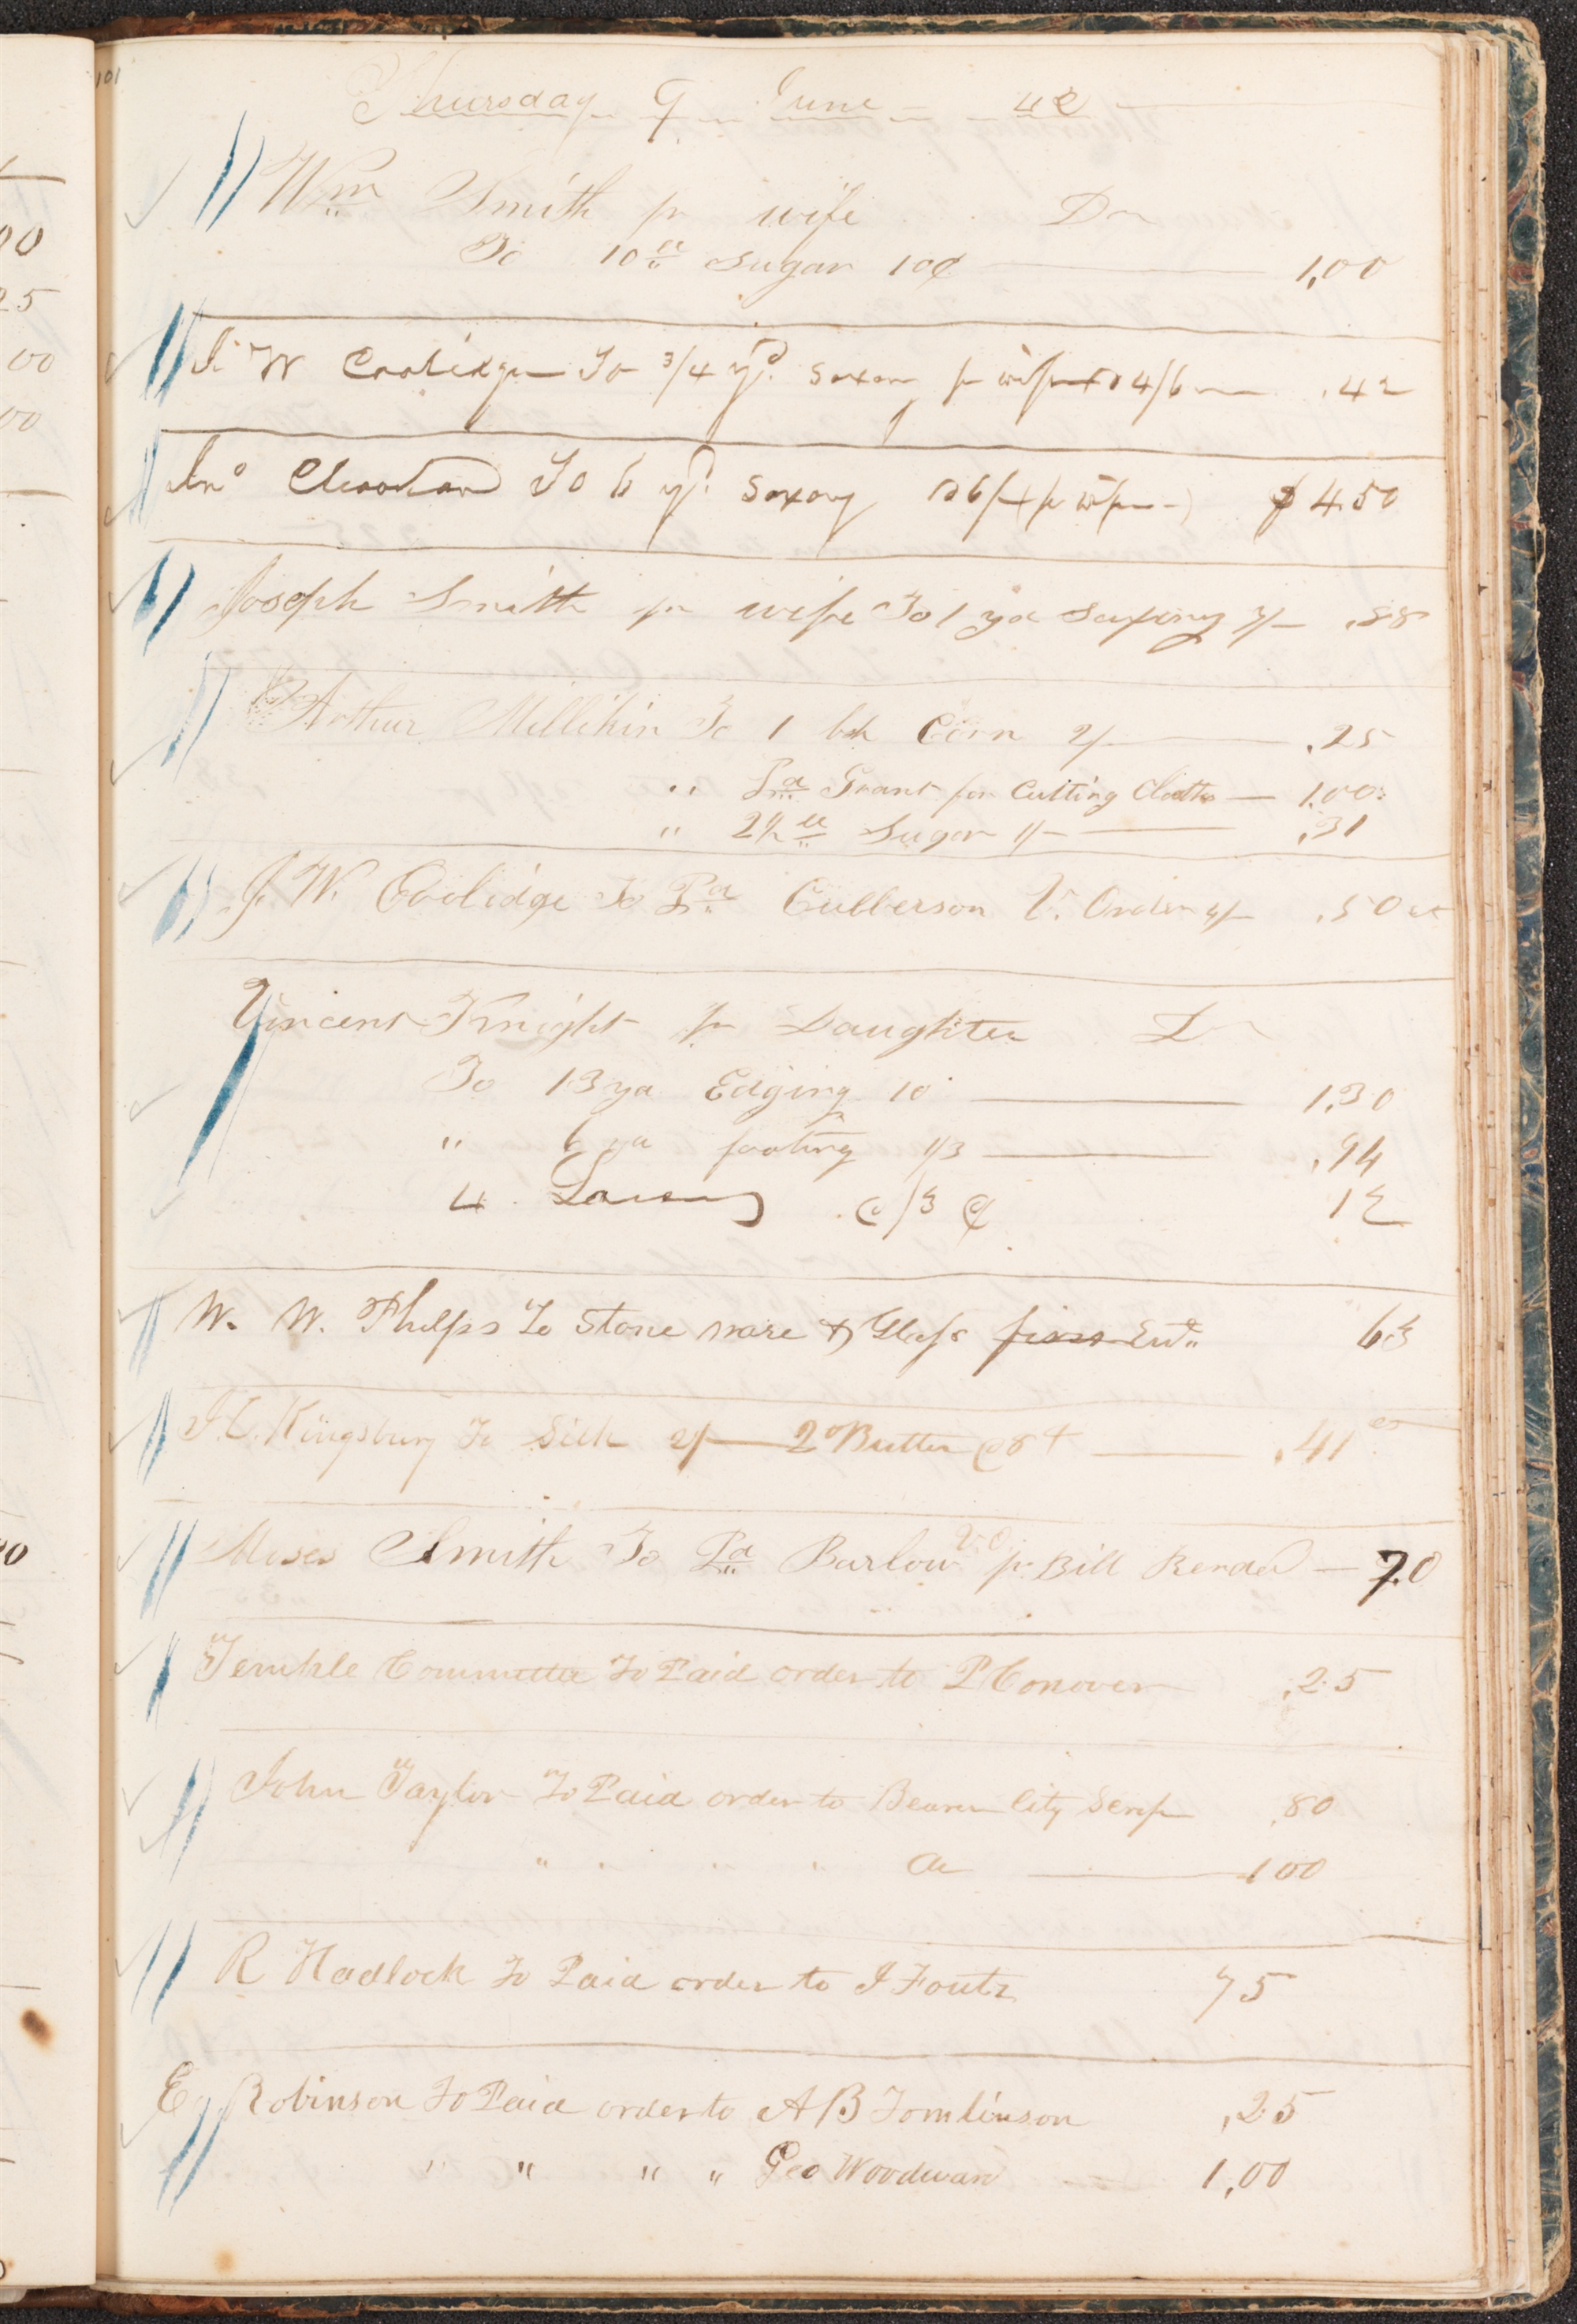 101
Thursday 9 June - 42
Wm Smith pr wife Dr
To 10 lb Sugar 10¢ 1,00
J W Coolidge To 3/4 yd. Saxony pr wife 4/6 .42
Jno To 6 yd. Saxony 6/ pr wife $4.50
Joseph Smith pr wife To 1 yd Saxony 7/ .88
Arthur Millikin To 1 bsh Corn 2/ .25
" Pd Grant for Cutting Cloths 1.00
" 2 1/2 lb Sugar 1/ .31
J. W. Coolidge To Pd Culberson V. Order 4/ .50
Vincent Knight pr Daughter Dr
To 13 yd Edging 10 1,30
" 6 yd footing 1/3 .94
4 @/3 ¢ 12
W. W. Phelps To Stone ware & Glass 63
J. C. Kingsbury To Silk 2/ 2 Butter @ 8 .41
Moses Smith To Pd Barlow V.O pr Bill Rendd 70
Temple Committee To Paid order to P Conover .25
John Taylor To Paid order to Bearer City Scrip .80
" " " " Do 1 00
R Hadlock To Paid order to J Foutz 75
E Robinson To Paid order to A B Tomlinson .25
" " " " Geo Woodward 1,00
00
25
00
00